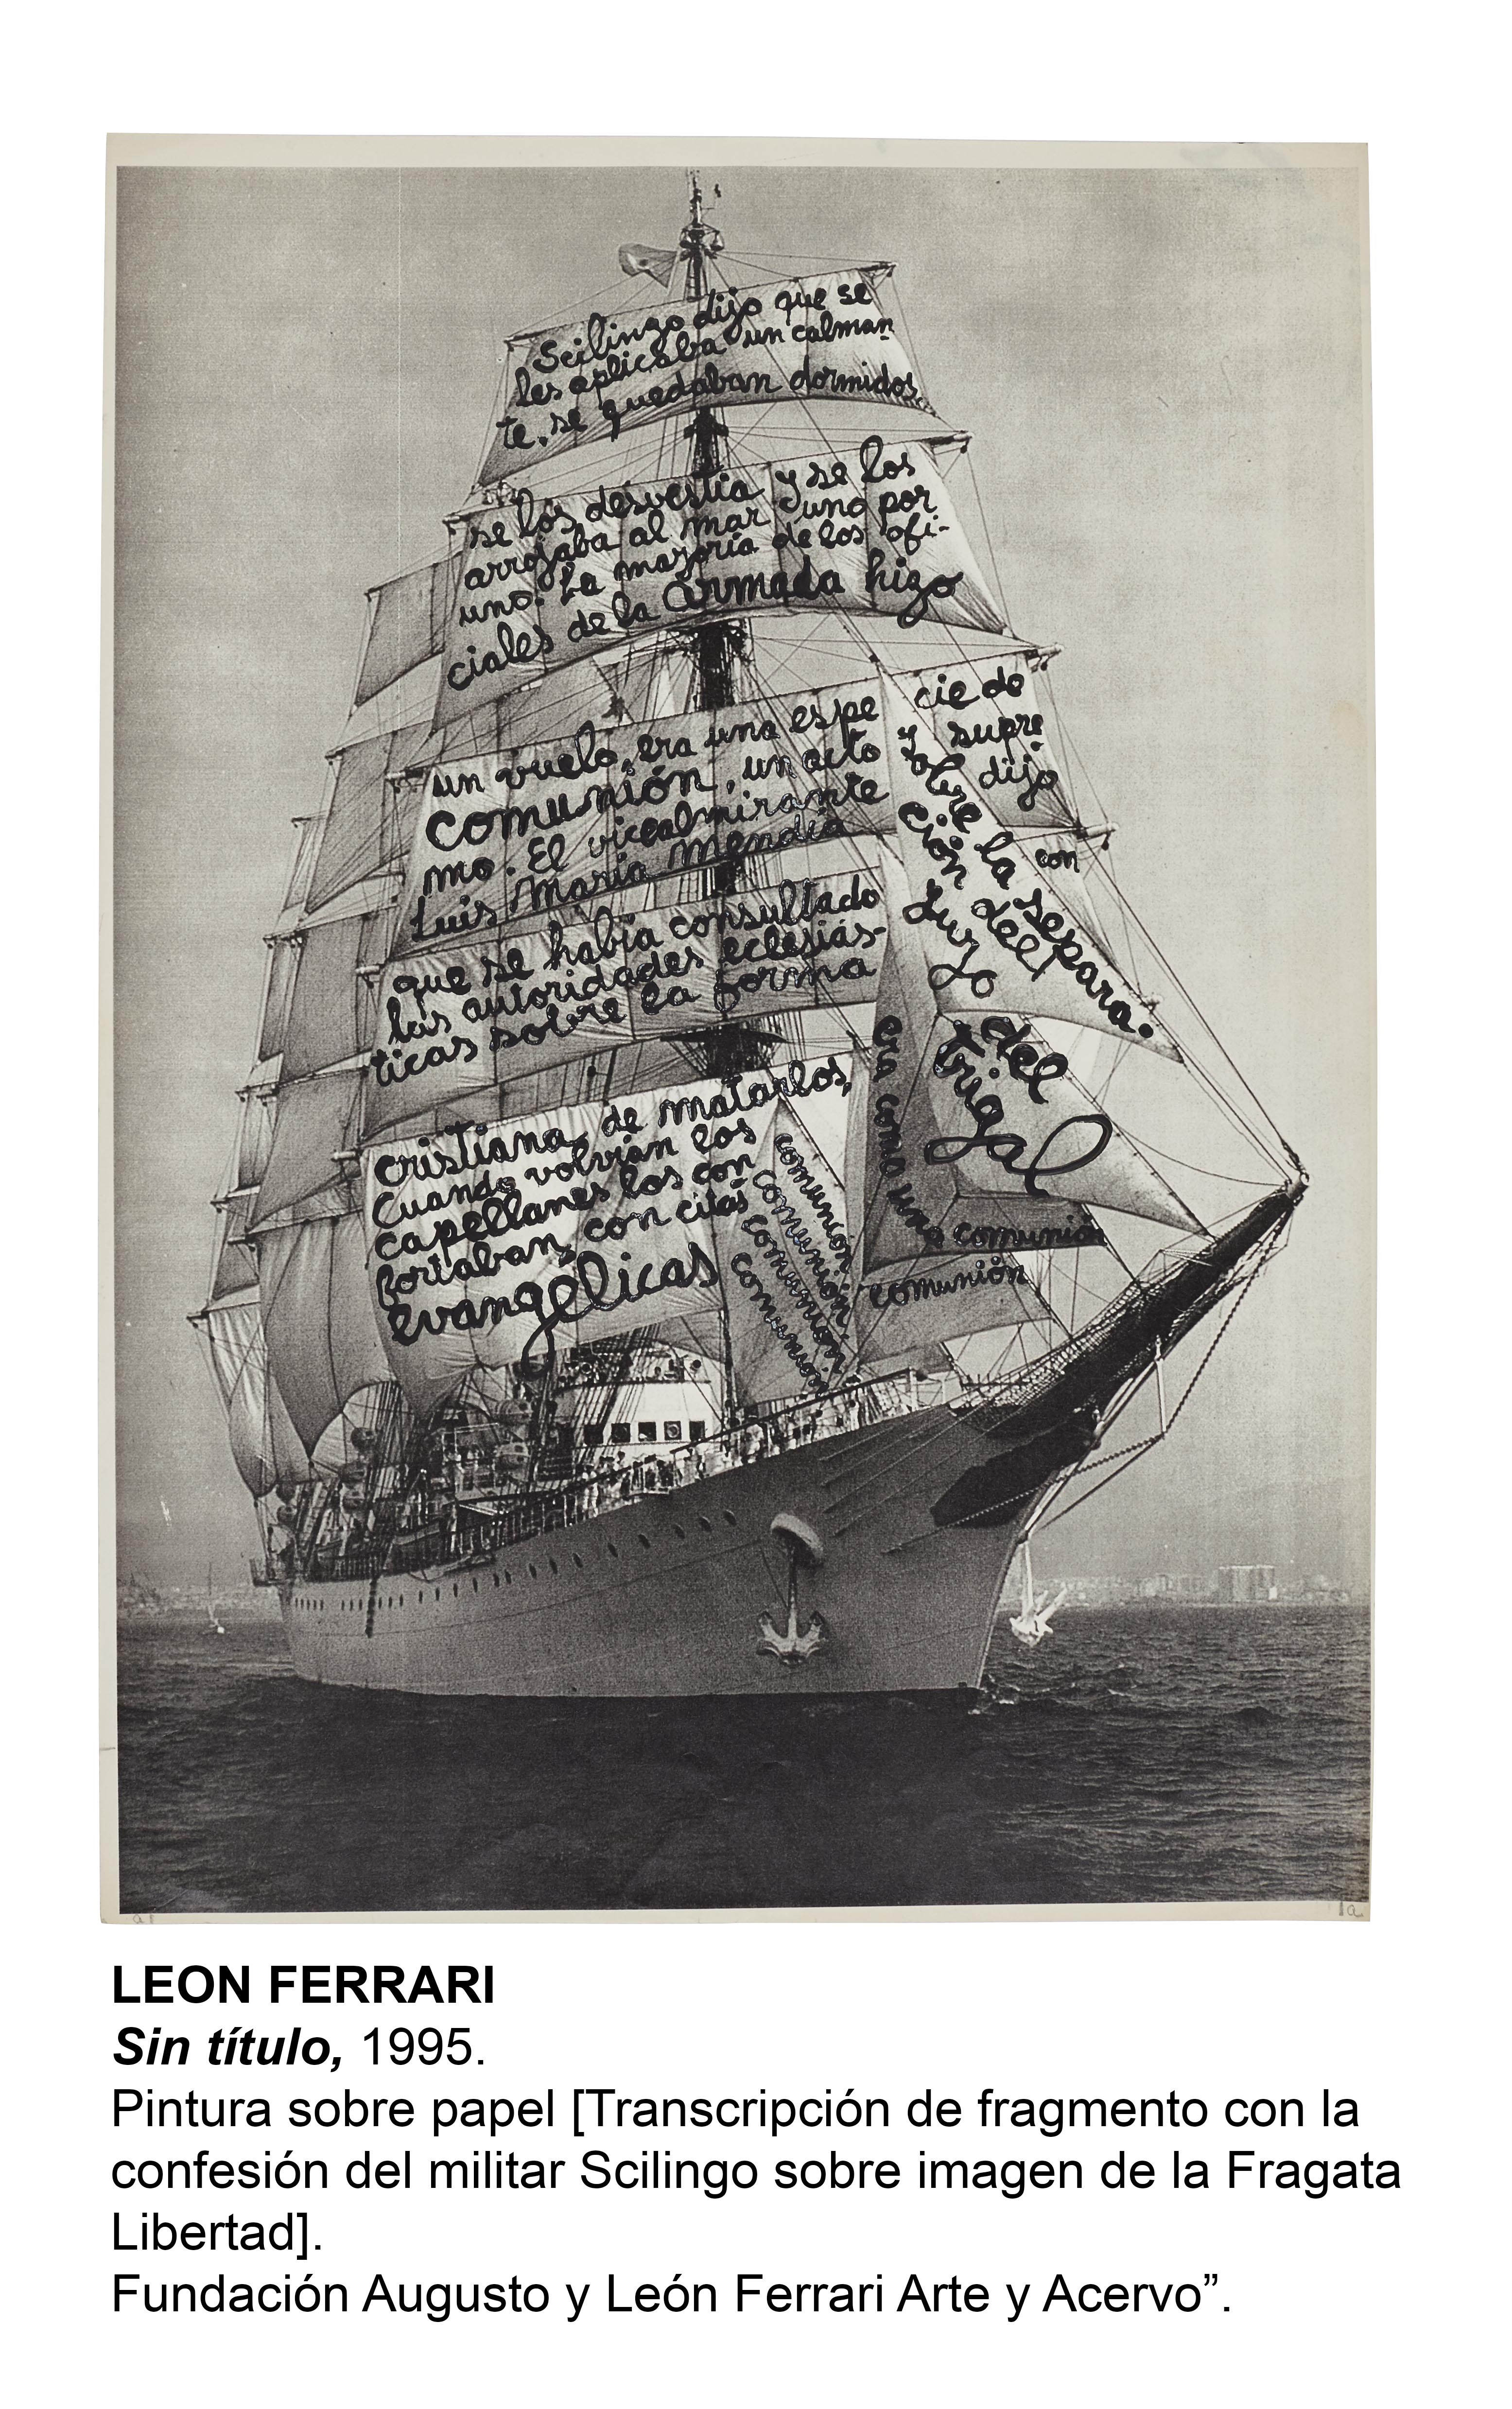 Scilingo dijo que se
les aplicaba un calman
te. se quedaban dormidos,
se los desvestía y se los
arrojaba al mar uno por
uno. La mayoría de los ofi-
ciales de la armada hizo
un vuelo, era una espe cie de
comunión, un acto y supre
mo. El vicealmirante dijo
Luis María Mendía con
que se había consultado
las autoridades eclesiás-
ticas sobre la forma
cristiana, de matarlos,
Cuando volvían los
capellanes los con
fortaban, con citas
evangélicas
sobre la separa.
ción del
Yuyo
del
trigal
era como una comunión
comunión
comunión
comunión
comunión
comunión
LEON FERRARI
Sin título, 1995.
Pintura sobre papel [Transcripción de fragmento con la
confesión del militar Scilingo sobre imagen de la Fragata
Libertad].
Fundación Augusto y León Ferrari Arte y Acervo”.